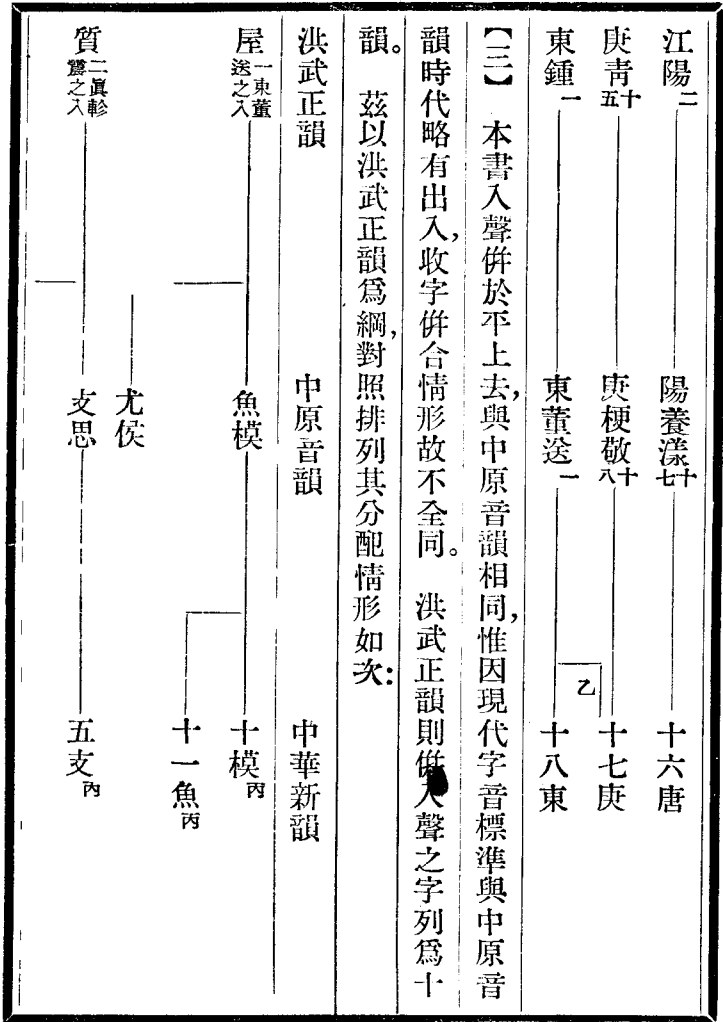 江陽二 陽養漾十七 十六唐
庚青十五 庚梗敬十八 十七庚
東鍾一 東董送一 乙 十八東
【三】　本書入聲併於平上去，與中原音韻相同，惟因現代字音標準與中原音
韻時代略有出入，收字併合情形故不全同。　洪武正韻則併入聲之字列爲十
韻。　茲以洪武正韻爲綱，對照排列其分配情形如次：
洪武正韻 中原音韻 中華新韻
屋一東董送之入 魚模 十模丙
十一魚丙
尤侯
質二眞軫震之入 支思 五支丙